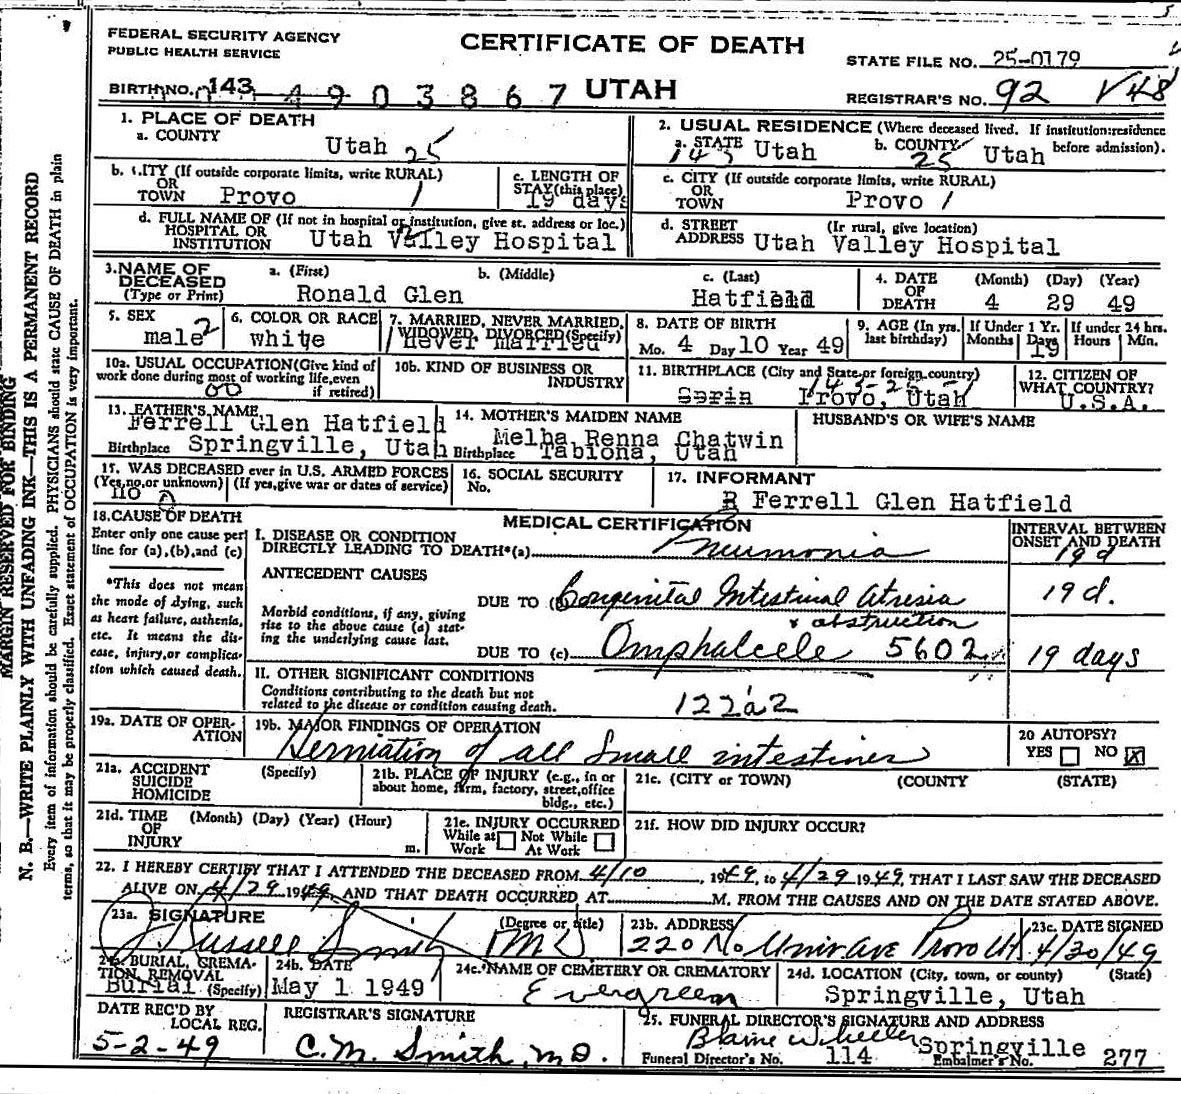 FEDERAL SECURITY AGENCY
PUBLIC HEALTH SERVICE
CERTIFICATE OF DEATH
UTAH
STATE FILE NO. 25-0179
BIRTH NO. 143 4903867
REGISTRAR'S NO. 92 V48
N. B.—WRITE PLAINLY WITH UNFADING INK—THIS IS A PERMANENT RECORD
MARGIN RESERVED FOR BINDING
Every item of information should be carefully supplied. PHYSICIANS should state CAUSE OF DEATH in plain
terms, so that it may be properly classified. Exact statement of OCCUPATION is very important.
1. PLACE OF DEATH
a. COUNTY Utah 25
2. USUAL RESIDENCE (Where deceased lived. If institution: residence before admission).
a. STATE 143 Utah b. COUNTY 25 Utah
b. CITY (If outside corporate limits, write RURAL) OR TOWN Provo 1
c. LENGTH OF STAY (this place) 19 days
c. CITY (If outside corporate limits, write RURAL) OR TOWN Provo 1
d. FULL NAME OF (If not in hospital or institution, give st. address or loc.) HOSPITAL OR INSTITUTION Utah Valley Hospital
d. STREET ADDRESS (If rural, give location) Utah Valley Hospital
3. NAME OF DECEASED (Type or Print)
a. (First) b. (Middle) c. (Last)
Ronald Glen Hatfield
4. DATE OF DEATH (Month) (Day) (Year) 4 29 49
5. SEX male 2
6. COLOR OR RACE white
7. MARRIED, NEVER MARRIED, WIDOWED, DIVORCED (Specify) never married
8. DATE OF BIRTH Mo. 4 Day 10 Year 49
9. AGE (In yrs. last birthday) If Under 1 Yr. Months Days 19 If under 24 hrs. Hours Min.
10a. USUAL OCCUPATION (Give kind of work done during most of working life, even if retired) 00
10b. KIND OF BUSINESS OR INDUSTRY
11. BIRTHPLACE (City and State or foreign country) 143-25-1
Sprin Provo, Utah
12. CITIZEN OF WHAT COUNTRY? U.S.A.
13. FATHER'S NAME Ferrell Glen Hatfield
Birthplace Springville, Utah
14. MOTHER'S MAIDEN NAME Melba Renna Chatwin
Birthplace Tabiona, Utah
HUSBAND'S OR WIFE'S NAME
15. WAS DECEASED ever in U.S. ARMED FORCES (Yes, no, or unknown) (If yes, give war or dates of service) no 0
16. SOCIAL SECURITY No.
17. INFORMANT
R Ferrell Glen Hatfield
18. CAUSE OF DEATH
Enter only one cause per line for (a), (b), and (c)
*This does not mean the mode of dying, such as heart failure, asthenia, etc. It means the disease, injury, or complication which caused death.
MEDICAL CERTIFICATION
INTERVAL BETWEEN ONSET AND DEATH
I. DISEASE OR CONDITION DIRECTLY LEADING TO DEATH*(a) Pneumonia 19 d
ANTECEDENT CAUSES
Morbid conditions, if any, giving rise to the above cause (a) stating the underlying cause last.
DUE TO (b) Congenital Intestinal Atresia & obstruction 19 d.
DUE TO (c) Omphalcele 5602 19 days
II. OTHER SIGNIFICANT CONDITIONS
Conditions contributing to the death but not related to the disease or condition causing death.
19a. DATE OF OPERATION
19b. MAJOR FINDINGS OF OPERATION
Herniation of all small intestines
20 AUTOPSY? YES ☐ NO ☒
21a. ACCIDENT SUICIDE HOMICIDE (Specify)
21b. PLACE OF INJURY (e.g., in or about home, farm, factory, street, office bldg., etc.)
21c. (CITY or TOWN) (COUNTY) (STATE)
21d. TIME OF INJURY (Month) (Day) (Year) (Hour) m.
21e. INJURY OCCURRED While at Work ☐ Not While At Work ☐
21f. HOW DID INJURY OCCUR?
22. I HEREBY CERTIFY THAT I ATTENDED THE DECEASED FROM 4/10, 1949, to 4/29 1949, THAT I LAST SAW THE DECEASED
ALIVE ON 4/29 1949, AND THAT DEATH OCCURRED AT M. FROM THE CAUSES AND ON THE DATE STATED ABOVE.
23a. SIGNATURE (Degree or title)
J Russell Smith MD
23b. ADDRESS
220 No Univ Ave Provo Ut
23c. DATE SIGNED
4/30/49
24a. BURIAL, CREMATION, REMOVAL (Specify) Burial
24b. DATE May 1 1949
24c. NAME OF CEMETERY OR CREMATORY
Evergreen
24d. LOCATION (City, town, or county) (State)
Springville, Utah
DATE REC'D BY LOCAL REG.
5-2-49
REGISTRAR'S SIGNATURE
C. M. Smith, M.D.
25. FUNERAL DIRECTOR'S SIGNATURE AND ADDRESS
Blaine Wheeler Springville
Funeral Director's No. 114 Embalmer's No. 277